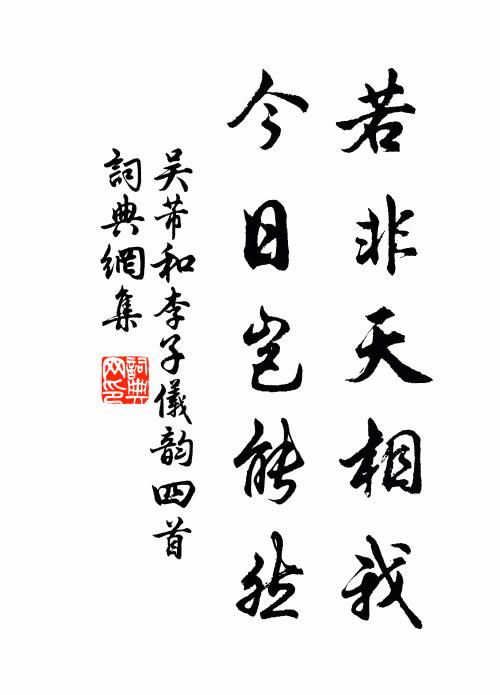 若非天相我
今日岂能然
吴芾和李子儀韵四首
詞典網集
詞典網印